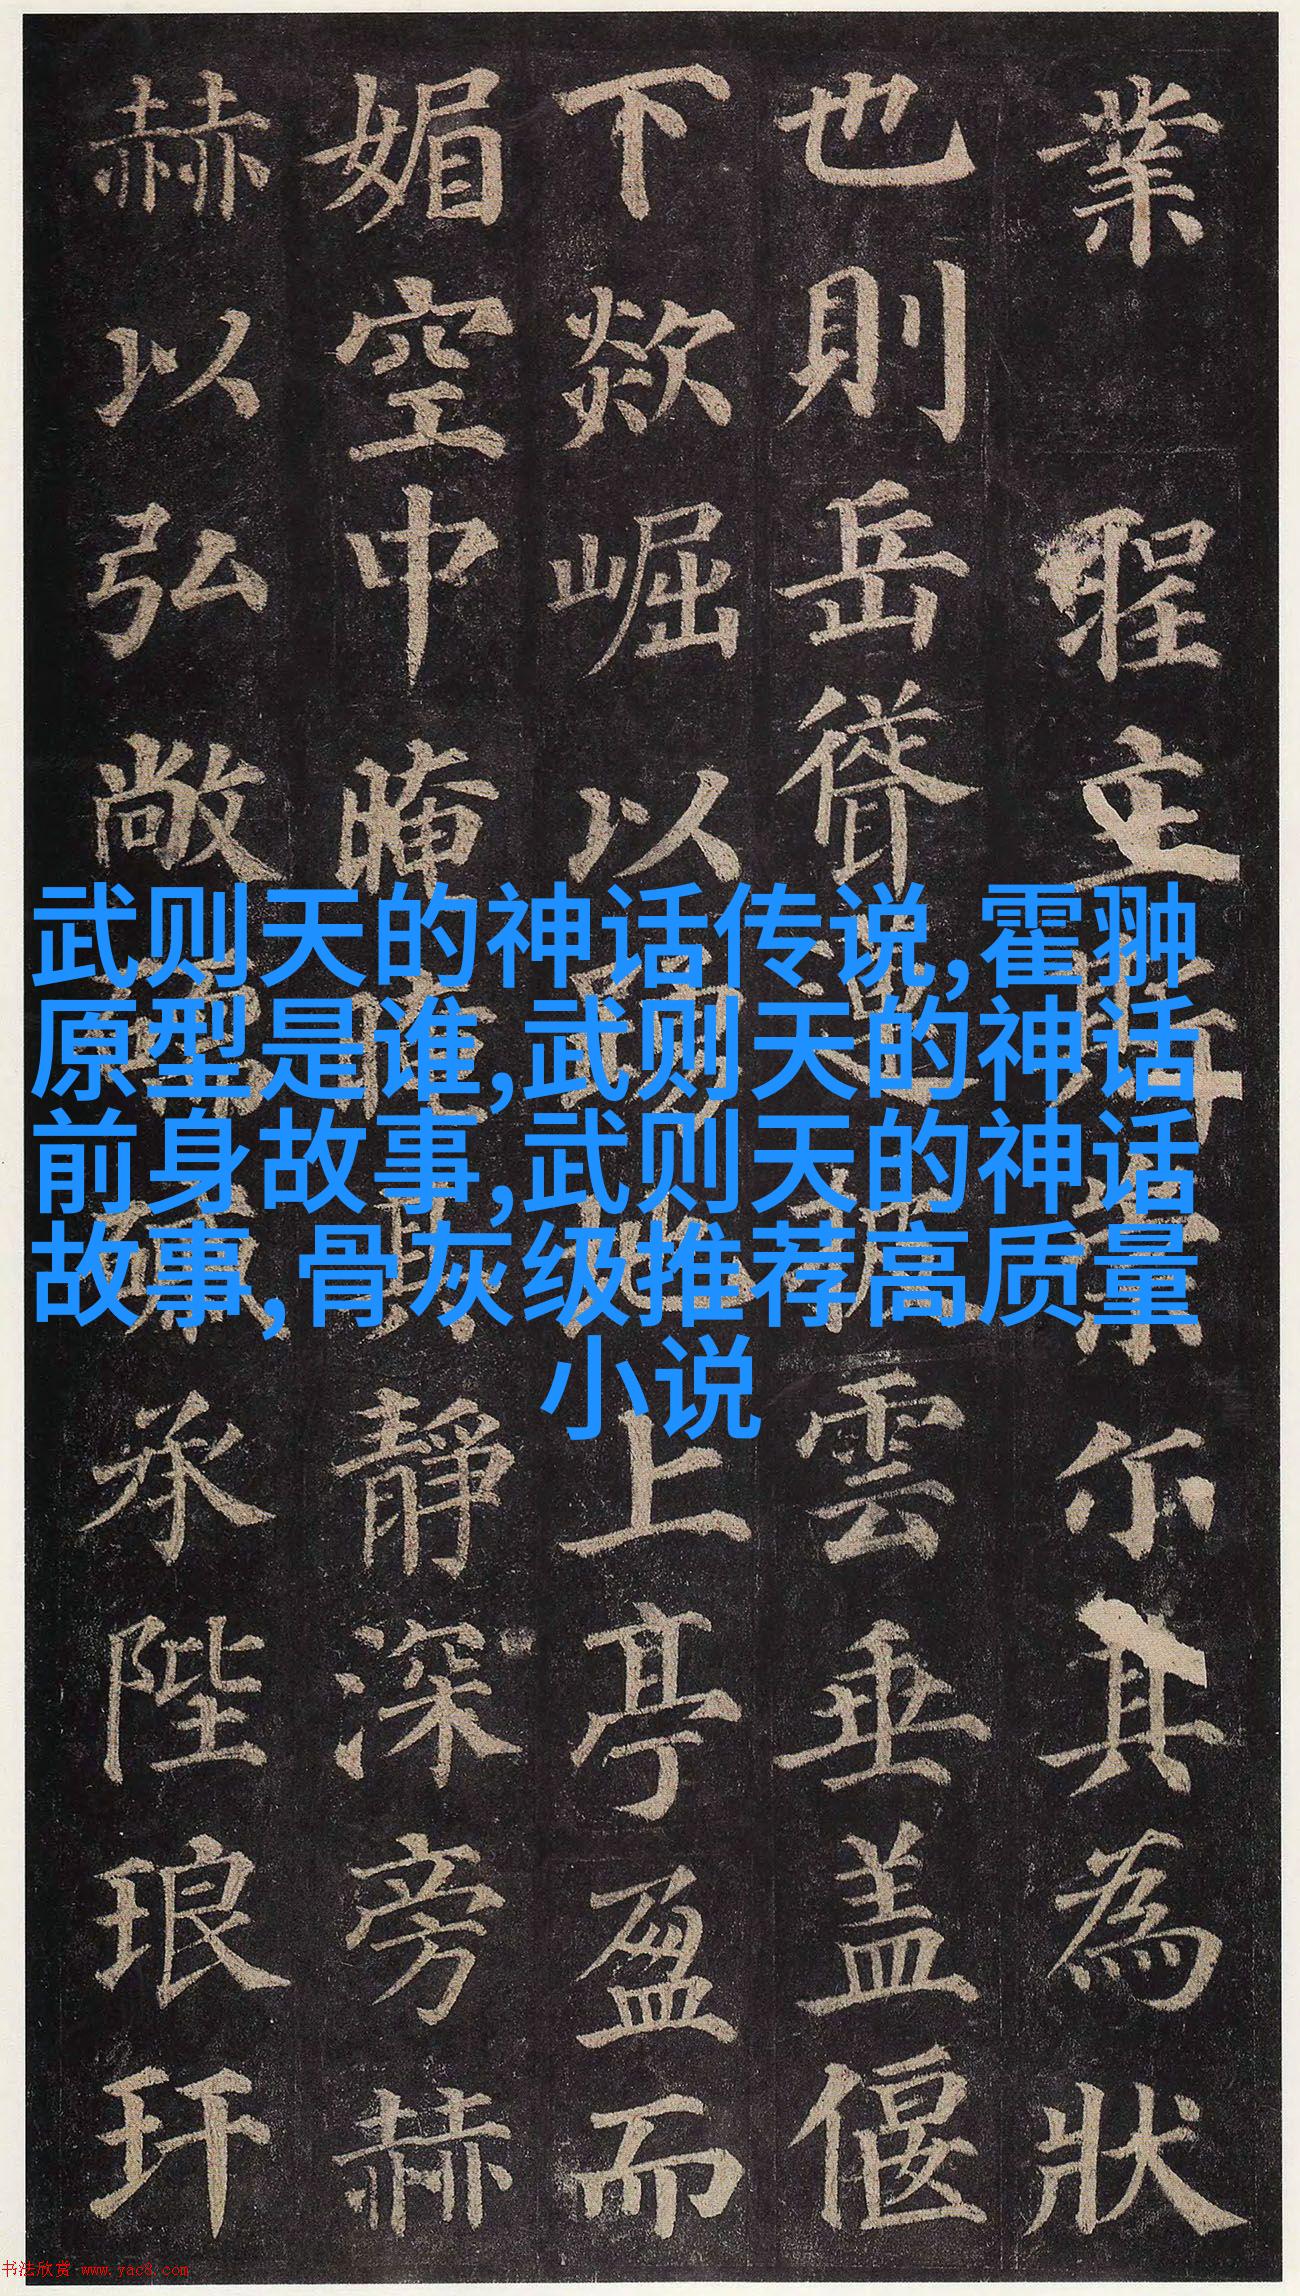 業聖立業尓其為狀
也則岳聳雲垂盖偃
下欻崛以上亭盈而
媚空中晻靜深旁赫
赫以弘敞承陛琅玕
武则天的神话传说,霍翀
原型是谁,武则天的神话
前身故事,武则天的神话
故事,骨灰级推荐高质量
小说
书法欣赏 www.yac8.com